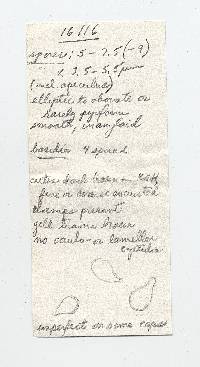 16116
spores: 5 - 7.5 (-9)
x 3.5 - 5.5 µm
(incl. apiculus)
elliptic to obovate or
rarely pyriform
smooth, inamyloid
basidia 4 spored
cutis dark brown
fine or coarse encrusted
clamps present
gill trama brown
no caulo- or lamellar
cystidia
imperfect on some